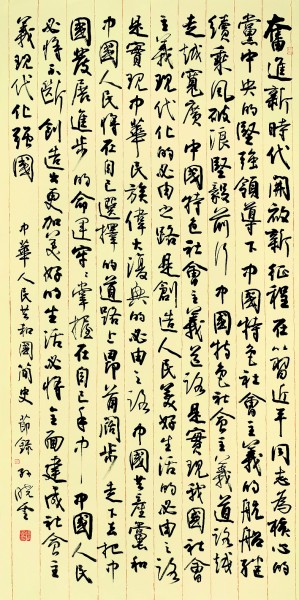 奮進新時代開啟新征程在以習近平同志為核心的
黨中央的堅強領導下中國特色社會主義的航船繼
續乘風破浪堅毅前行中國特色社會主義道路越
走越寬廣中國特色社會主義道路是實現我國社會
主義現代化的必由之路是創造人民美好生活的必由之路
是實現中華民族偉大復興的必由之路中國共產黨和
中國人民將在自己選擇的道路上昂首闊步走下去把中
國發展進步的命運牢牢掌握在自己手中中國人民
必將不斷創造出更加美好的生活必將全面建成社會主
義現代化強國 中華人民共和國簡史節錄 孫曉雲